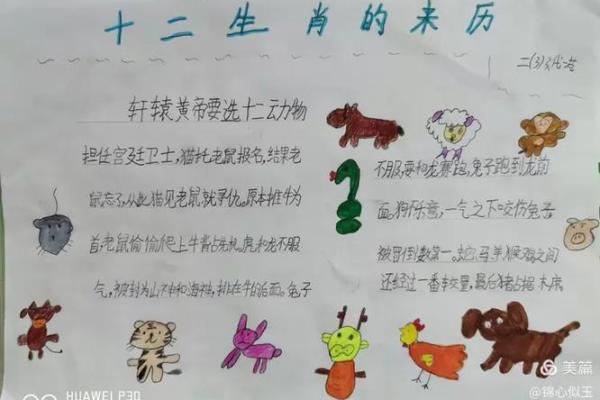 十二生肖的来历
二(3)
轩辕黄帝要选十二动物
担任宫廷卫士,猫托老鼠报名,结果老
鼠忘了,从此猫见老鼠就寻仇。原本推牛为
首老鼠偷偷爬上牛背占先机。虎和龙不服
气,被封为山神和海神,排在牛的后面。兔子
不服,要和龙赛跑,兔子跑到龙前
面。狗不乐意,一气之下咬伤兔子
被罚倒数第一。蛇、马、羊、猴、鸡之间
还经过一番较量,最后猪占据末席
HUAWEI P30
美篇
@锦心似玉